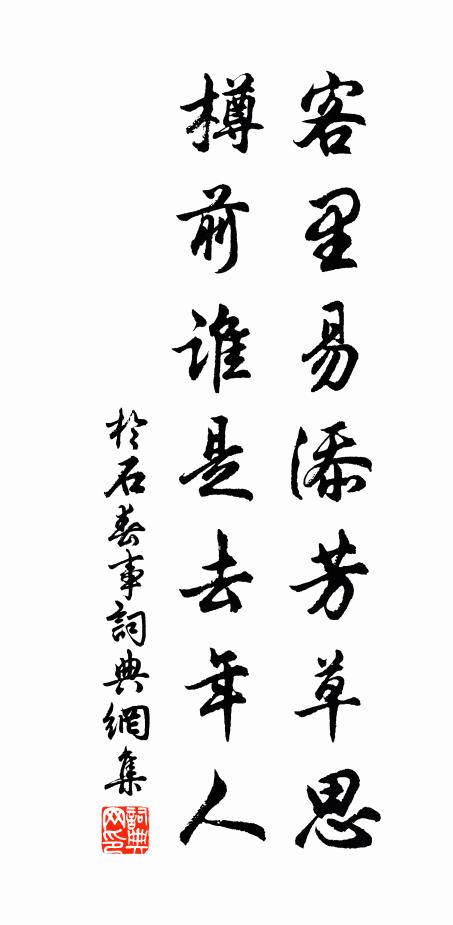 客里易添芳草思
樽前谁是去年人
於石春事詞典網集
詞典网印